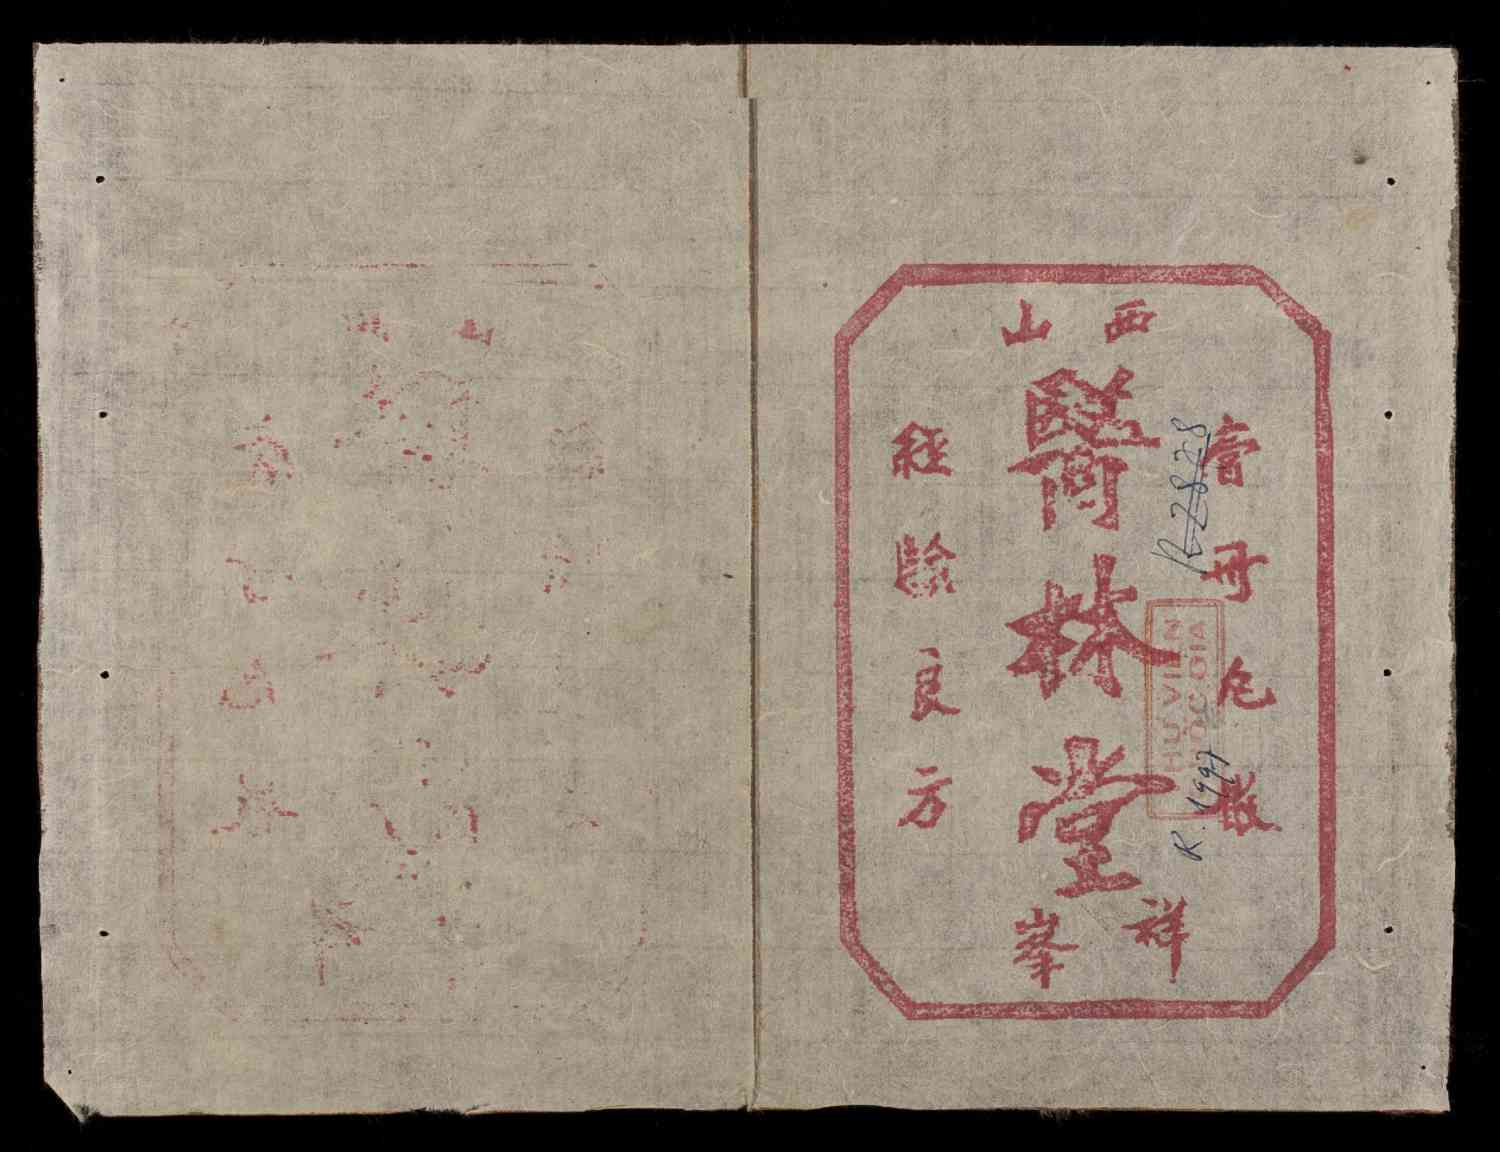 西山
膏丹卮散
醫林堂
祥峯
經驗良方
R 2828
THƯ VIỆN
QUỐC GIA
R. 1997